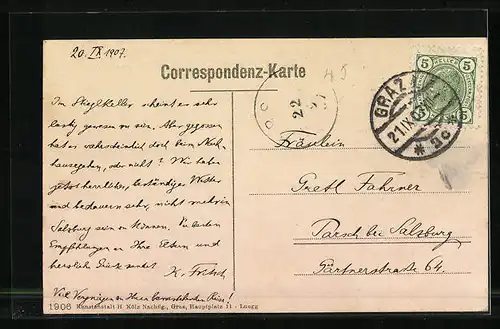 20. IX. 1907.
Correspondenz-Karte
45
Im Steylkeller scheint es sehr
lustig gewesen zu sein. Aber gegossen
hat es wahrscheinlich dort beim Nach-
hausegehen, oder nicht? Wir haben
jetzt herrliches, beständiges Wetter
und bedauern sehr, nicht mehr in
Salzburg sein zu können. Die besten
Empfehlungen an Ihre Eltern und
herzlich Grüße sendet
K. Fritsch.
Viel Vergnügen zu Ihrer bevorstehenden Reise!
1906 Kunstanstalt H. Kölz Nachfg., Graz, Hauptplatz 11 - Luegg
22
5 HELLER 5
5 5
GRAZ
21.IX.07
* 9c *
Fräulein
Gretl Fahrner
Parsch bei Salzburg
Gärtnerstraße 64.